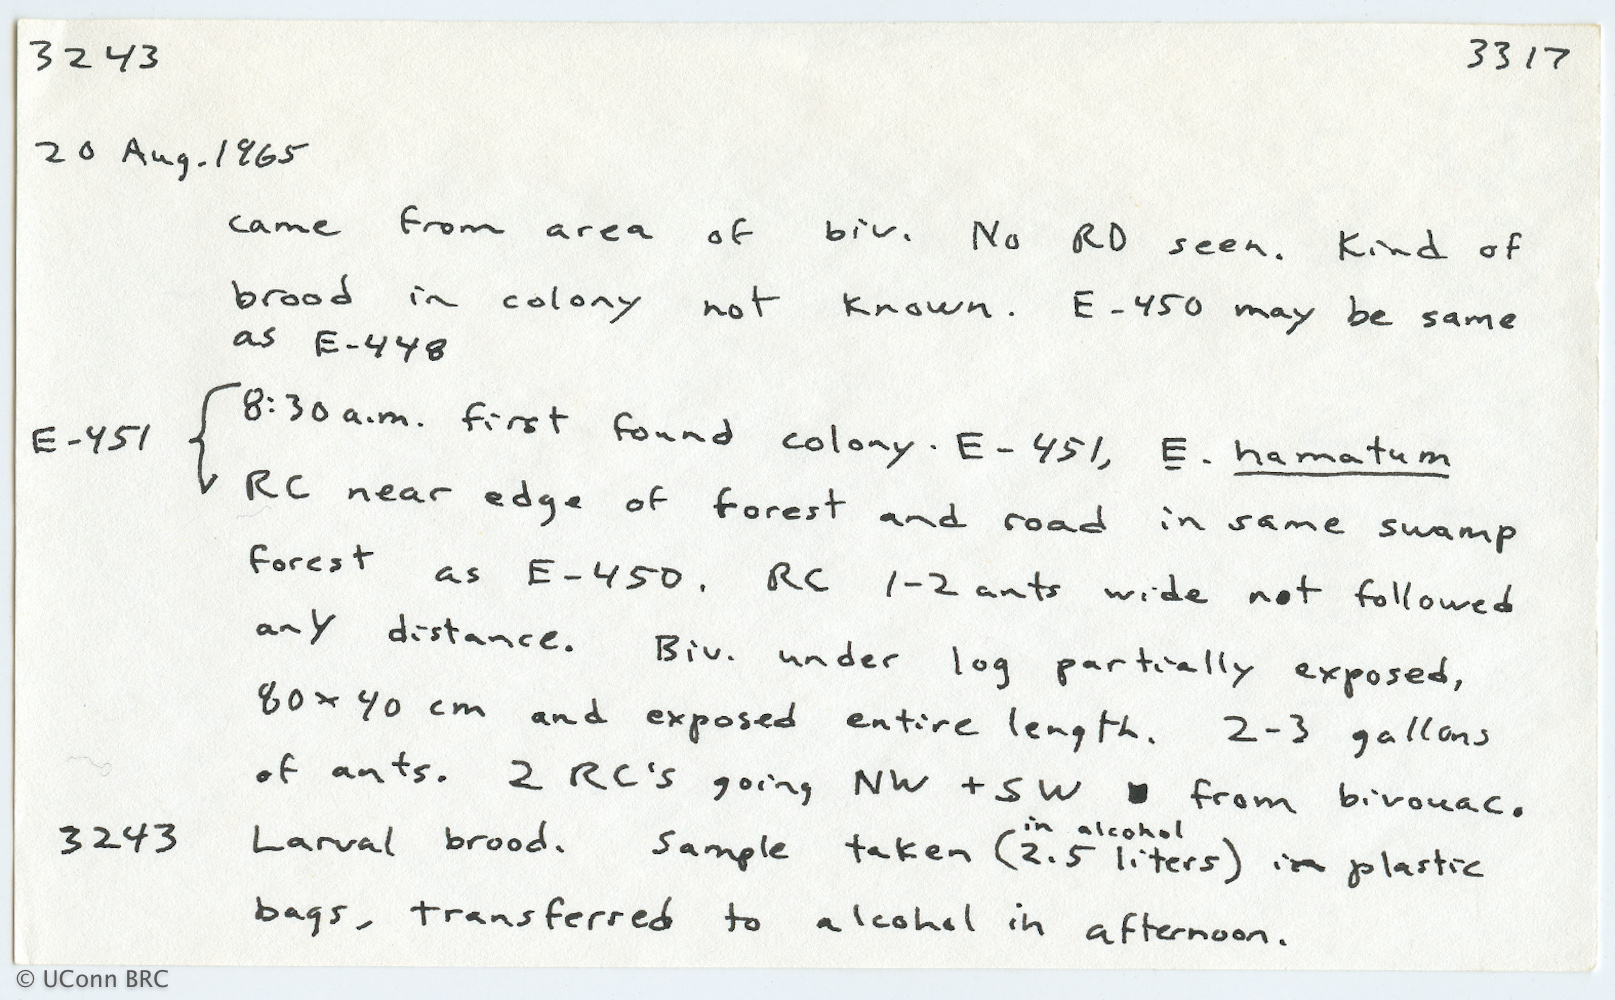 3243 3317
20 Aug. 1965
came from area of biv. No RD seen. Kind of
brood in colony not known. E-450 may be same
as E-448
E-451 8:30 a.m. first found colony. E-451, E. hamatum
RC near edge of forest and road in same swamp
forest as E-450. RC 1-2 ants wide not followed
any distance. Biv. under log partially exposed,
80 x 40 cm and exposed entire length. 2-3 gallons
of ants. 2 RC's going NW + SW from bivouac.
in alcohol
3243 Larval brood. Sample taken (2.5 liters) in plastic
bags, transferred to alcohol in afternoon.
© UConn BRC